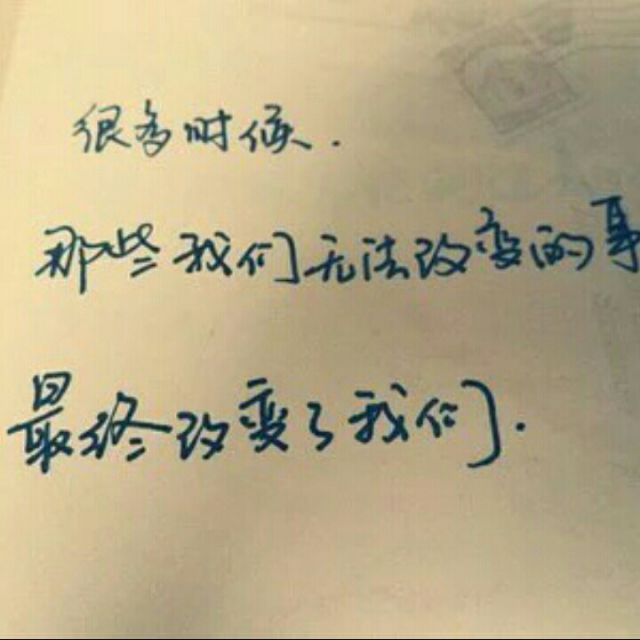 很多时候.
那些我们无法改变的事
最终改变了我们.